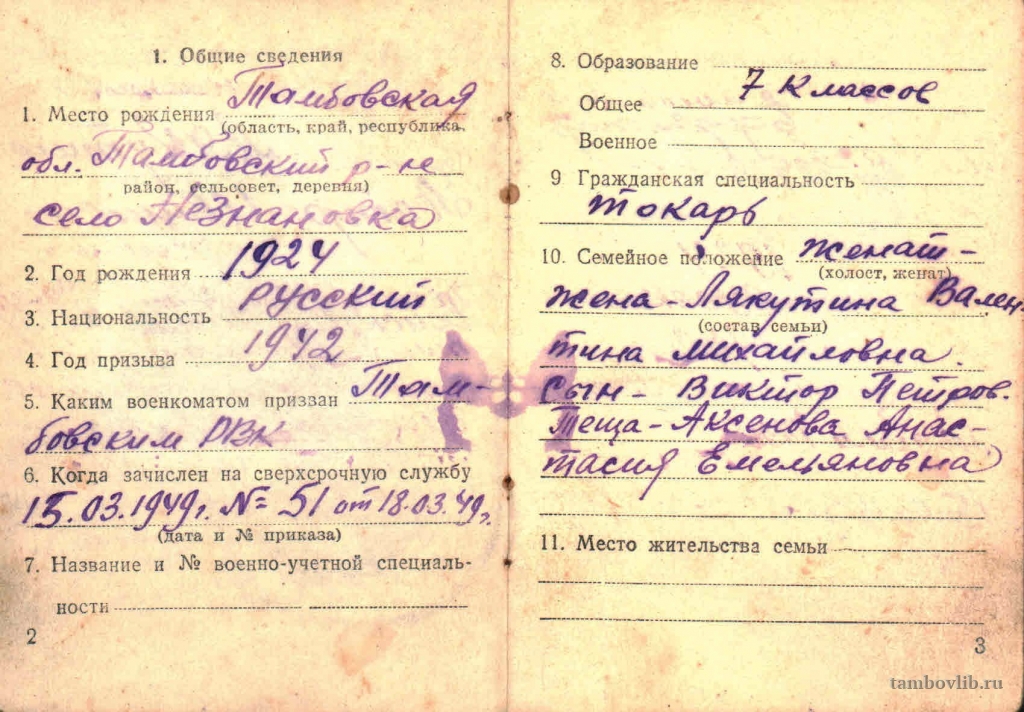 1. Общие сведения
1. Место рождения Тамбовская
(область, край, республика,
обл. Тамбовский р-не
район, сельсовет, деревня)
село Незнановка
2. Год рождения 1924
3. Национальность русский
4. Год призыва 1942
5. Каким военкоматом призван Там-
бовским РВК
6. Когда зачислен на сверхсрочную службу
15.03.1949г. №=51 от 18.03.49г.
(дата и № приказа)
7. Название и № военно-учетной специаль-
ности
2
8. Образование
Общее 7 классов
Военное
9 Гражданская специальность
токарь
10. Семейное положение женат-
(холост, женат)
жена-Лякутина Вален-
(состав семьи)
тина Михайловна.
Сын- Виктор Петров.
Теща-Аксенова Анас-
тасия Емельяновна
11. Место жительства семьи
3
tambovlib.ru